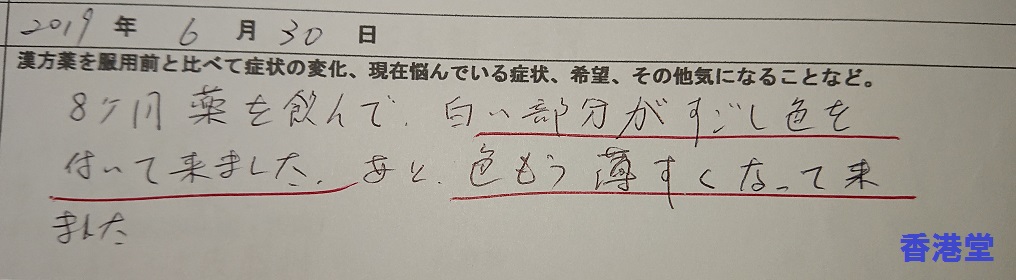 2019 年 6 月 30 日
漢方薬を服用前と比べて症状の変化、現在悩んでいる症状、希望、その他気になることなど。
8ケ月 薬を飲んで、白い部分がすごし色を
付いて来ました、あと、色もう薄すくなって来
ました
香港堂